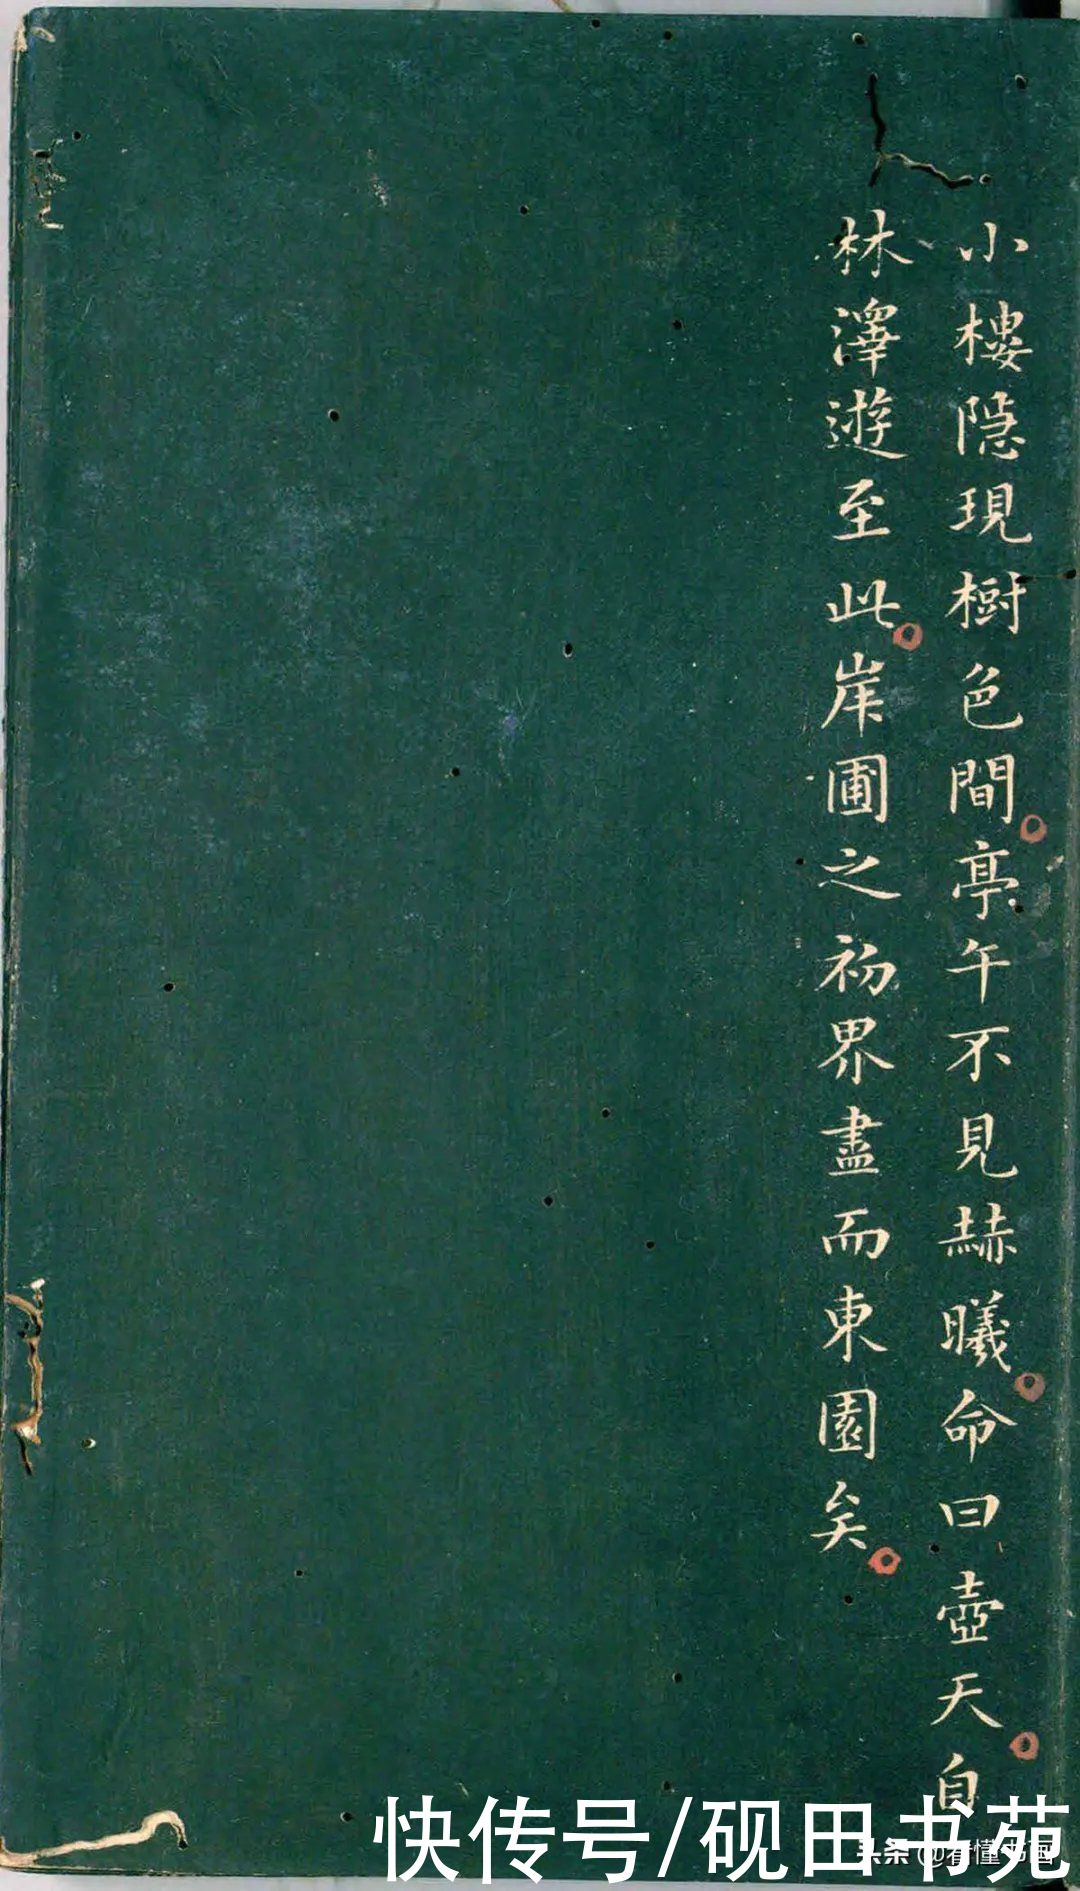 小樓隱現樹色間亭午不見赫曦命曰壺天自
林澤遊至此岸圃之初界盡而東園矣
快传号/砚田书苑
头条 @看懂书画